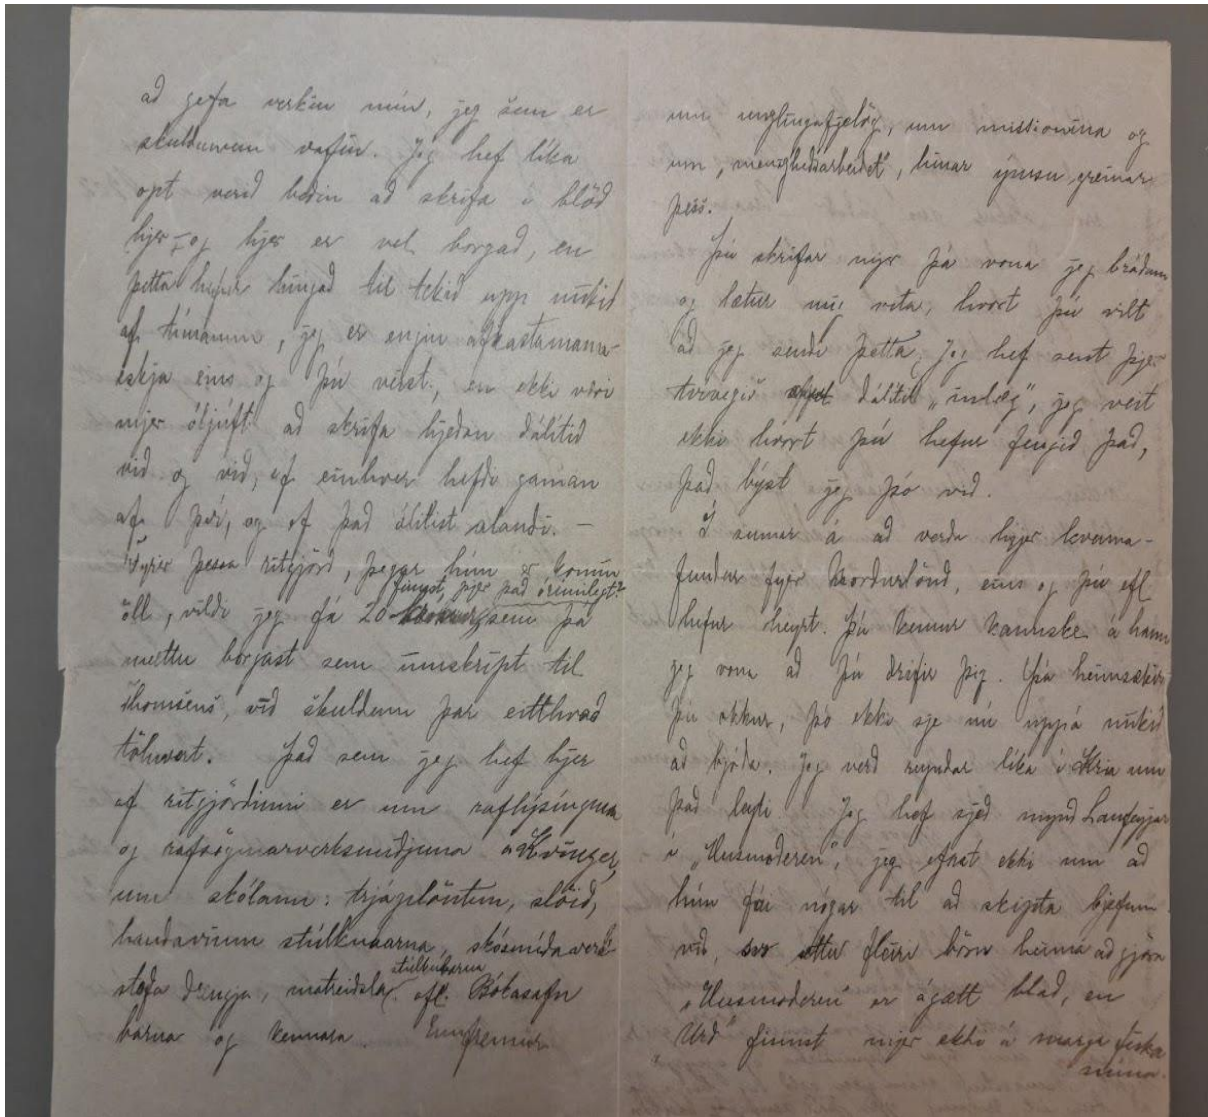 að gefa verkin mín, jeg sem er
skuldunum vafin. Jeg hef líka
opt verið beðin að skrifa í blöð
hjer – og hjer er vel borgað, en
þetta hefur hingað til tekið upp mikið
af tímanum, jeg er engin afkastamann-
eskja eins og þú veist, en ekki væri
mjer óljúft að skrifa hjeðan dálítið
við og við, ef einhver hefði gaman
af því, og ef það álitist alandi. –
Fyrir þessa ritgjörð, þegar hún er komin
finnst þjer það ósennilegt?
öll, vildi jeg fá 20 krónur, sem þá
mættu borgast sem innskript til
Thomsens, við skuldum þar eitthvað
töluvert. Það sem jeg hef hjer
af ritgjörðinni er um raflýsinguna
og rafsögunarverksmiðjuna á
um skólann: trjáplöntun, slöid,
handavinnu stúlknanna, skósmíðaverk-
stofu drengja, matreiðslu stúlknanna ofl. Bókasafn
barna og kennara. Ennfremur
um unglingafjelög, um missionina og
um „menighedsarbeidet", hinar ýmsu greinar
þess.
Þú skrifar mjer þá vona jeg bráðum
og lætur mig vita, hvort þú vilt
að jeg sendi þetta. Jeg hef sent þjer
tvívegis dálítið „indlæg", jeg veit
ekki hvort þú hefur fengið það,
það býst jeg þó við.
Í sumar á að verða hjer kvenna-
fundur fyrir Norðurlönd, eins og þú efl.
hefur heyrt. Þú kemur kannske á hann
jeg vona að þú drífir þig. Þá heimsækir
þú okkur, þó ekki sje nú uppá mikið
að bjóða. Jeg verð reyndar líka í Kria um
það leyti. Jeg hef sjeð mynd Laufeyjar
í „Husmoderen", jeg efast ekki um að
hún fái nógar til að skipta brjefum
við, svo ættu fleiri börn heima að gjöra
„Husmoderen" er ágætt blað, en
„Urd" finnst mjer ekki á marga fiska
núna.